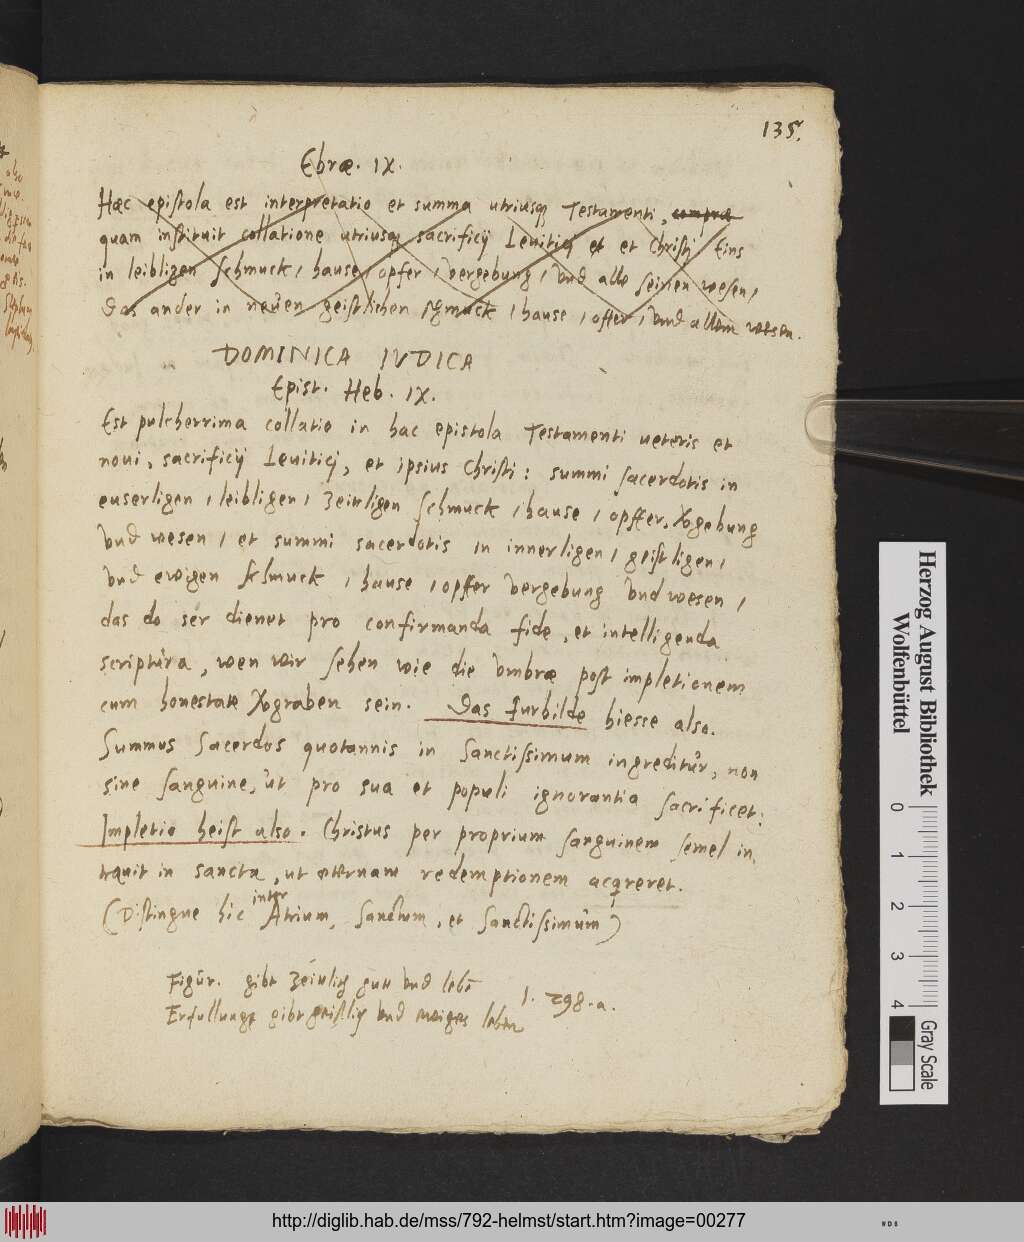 135.
Ebræ. IX.
Hæc epistola est interpretatio et summa utriusq Testamenti,
quam instituit collatione utriusq sacrificij Leuitici et et Christi Eins
in leibligen schmuck, hause, opfer, vergebung, vnd alle seinen wesen,
Das ander in neuen geistlichen schmuck, hause, offer, vnd allem wesen.
DOMINICA IVDICA
Epist. Heb. IX.
Est pulcherrima collatio in hac epistola Testamenti ueteris et
noui, sacrificij Leuitici, et ipsius Christi: summi sacerdotis in
euserligen, leibligen, zeitligen schmuck, hause, opffer, Xgebung
vnd wesen, et summi sacerdotis in innerligen, geistligen,
vnd ewigen schmuck, hause, opffer vergebung vnd wesen,
das do ser dienet pro confirmanda fide, et intelligenda
scriptura, wen wir sehen wie die vmbræ post impletionem
cum honestate Xgraben sein. Das furbilde hiesse also.
Summus Sacerdos quotannis in Sanctissimum ingreditur, non
sine sanguine, ut pro sua et populi ignorantia sacrificet:
Impletio heist also. Christus per proprium sanguinem semel in
trauit in sancta, ut æternam redemptionem acqreret.
inter
(Distingue hic Atrium, Sanctum, et Sanctissimum)
Figur. gibt zeitlich gutt vnd lebē
Erfullunge gibt geistlich vnd ewiges leben
l. 298.a.
Herzog August Bibliothek
Wolfenbüttel
0 1 2 3 4
Gray Scale
http://diglib.hab.de/mss/792-helmst/start.htm?image=00277